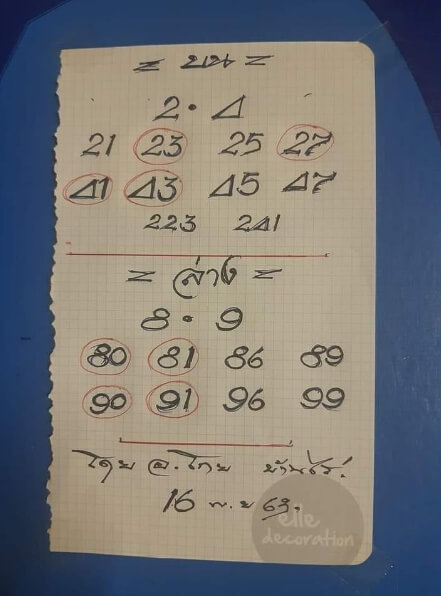 = บน =
2 • 4
21 23 25 27
41 43 45 47
223 241
= ล่าง =
8 • 9
80 81 86 89
90 91 96 99
โดย อ.โทย บ้านไร่.
16 พ.ย 63.
elle
decoration